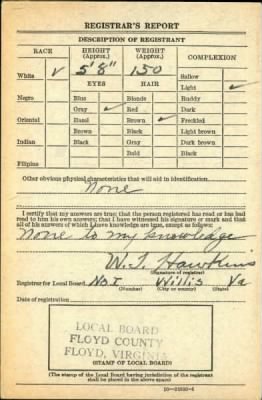 REGISTRAR'S REPORT
DESCRIPTION OF REGISTRANT
RACE HEIGHT (Approx.) WEIGHT (Approx.) COMPLEXION
White ✓ 5' 8" 150 Sallow
EYES HAIR Light ✓
Negro Blue Blonde Ruddy
Gray ✓ Red Dark
Oriental Hazel Brown ✓ Freckled
Brown Black Light brown
Indian Black Gray Dark brown
Bald Black
Filipino
Other obvious physical characteristics that will aid in identification
None
I certify that my answers are true; that the person registered has read or has had
read to him his own answers; that I have witnessed his signature or mark and that
all of his answers of which I have knowledge are true, except as follows:
None to my knowledge
W. T. Hawkins
(Signature of registrar)
Registrar for Local Board No 1 Willis Va
(Number) (City or county) (State)
Date of registration
LOCAL BOARD
FLOYD COUNTY
FLOYD, VIRGINIA
(STAMP OF LOCAL BOARD)
(The stamp of the Local Board having jurisdiction of the registrant
shall be placed in the above space)